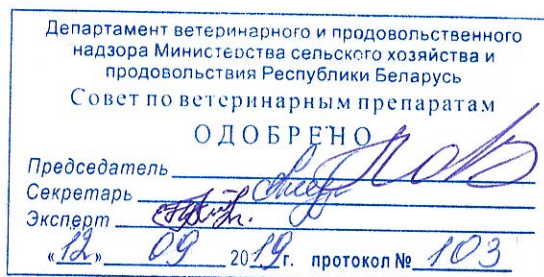 Департамент ветеринарного и продовольственного
надзора Министерства сельского хозяйства и
продовольствия Республики Беларусь
Совет по ветеринарным препаратам
ОДОБРЕНО
Председатель
Секретарь
Эксперт
«12» 09 2019г. протокол № 103